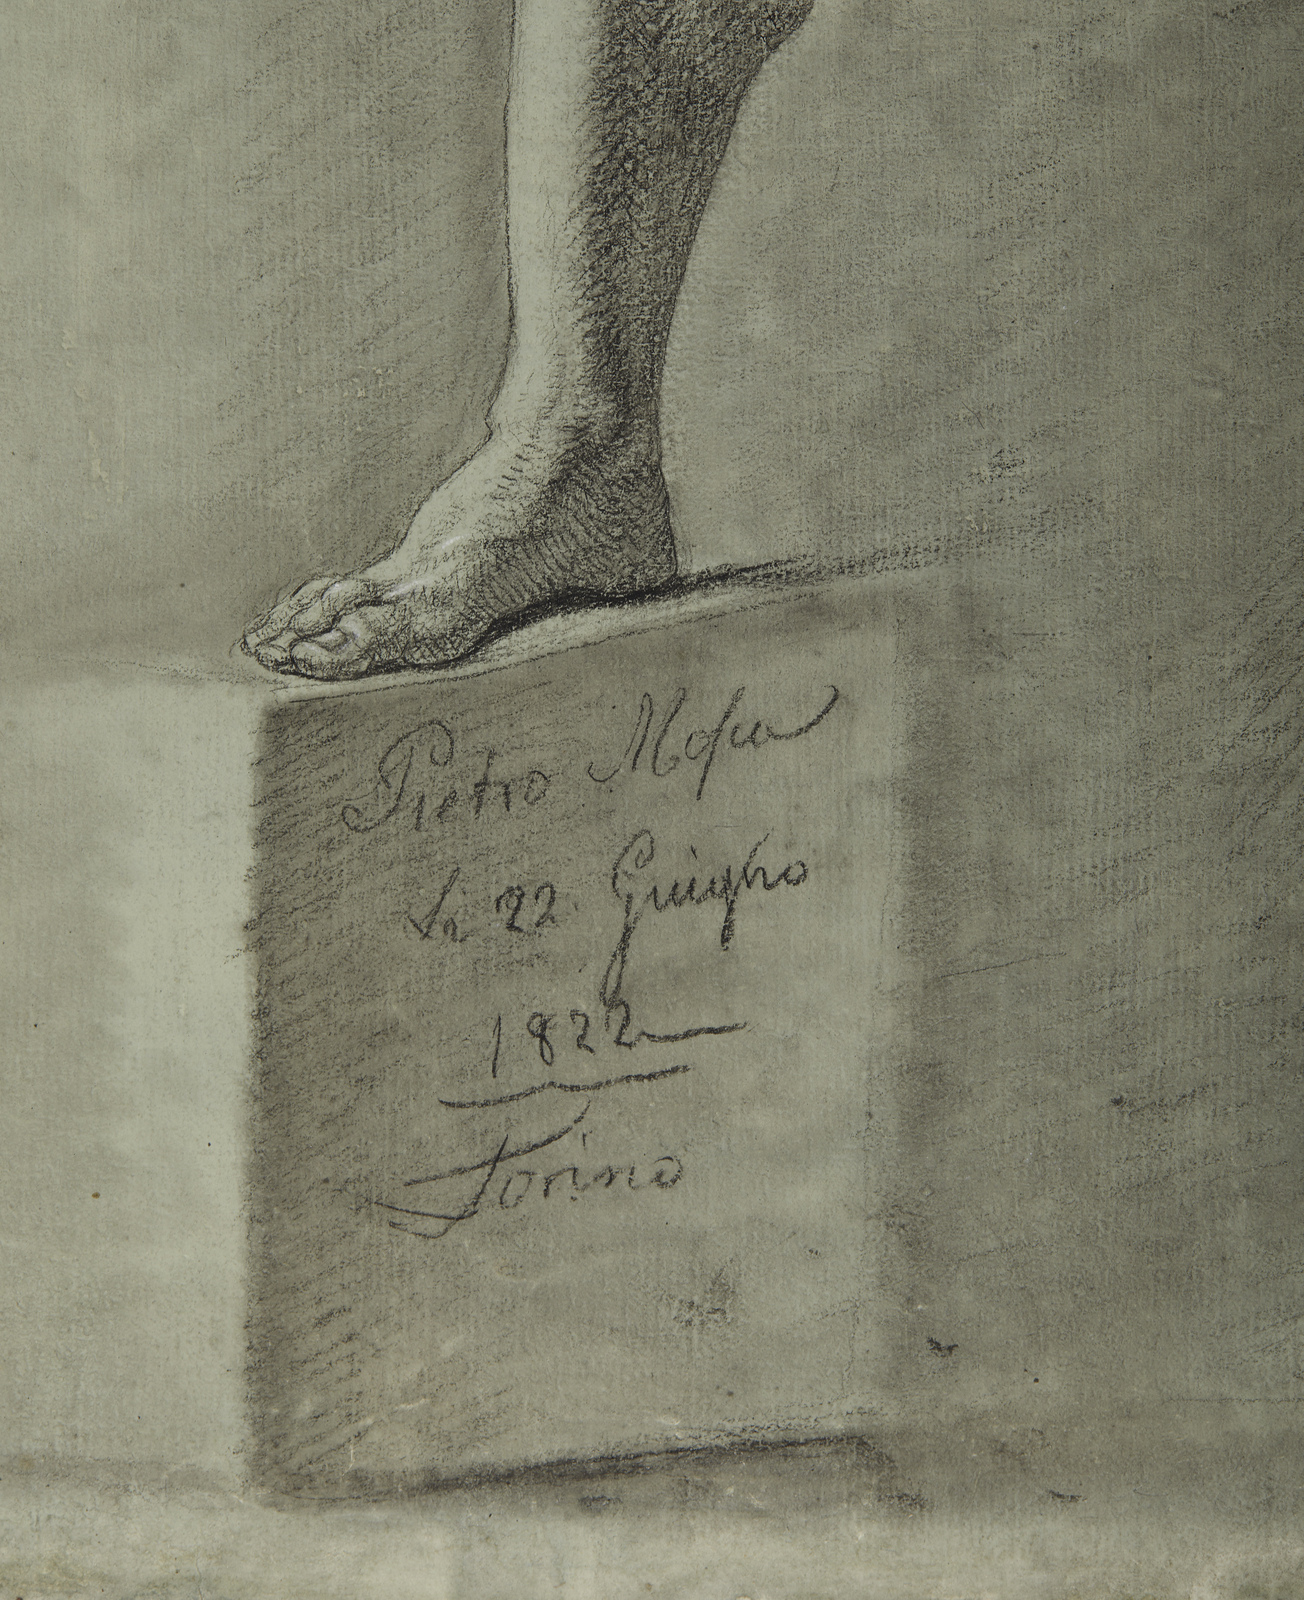 Pietro Moſca
Li 22. Guigno
1822
Torino